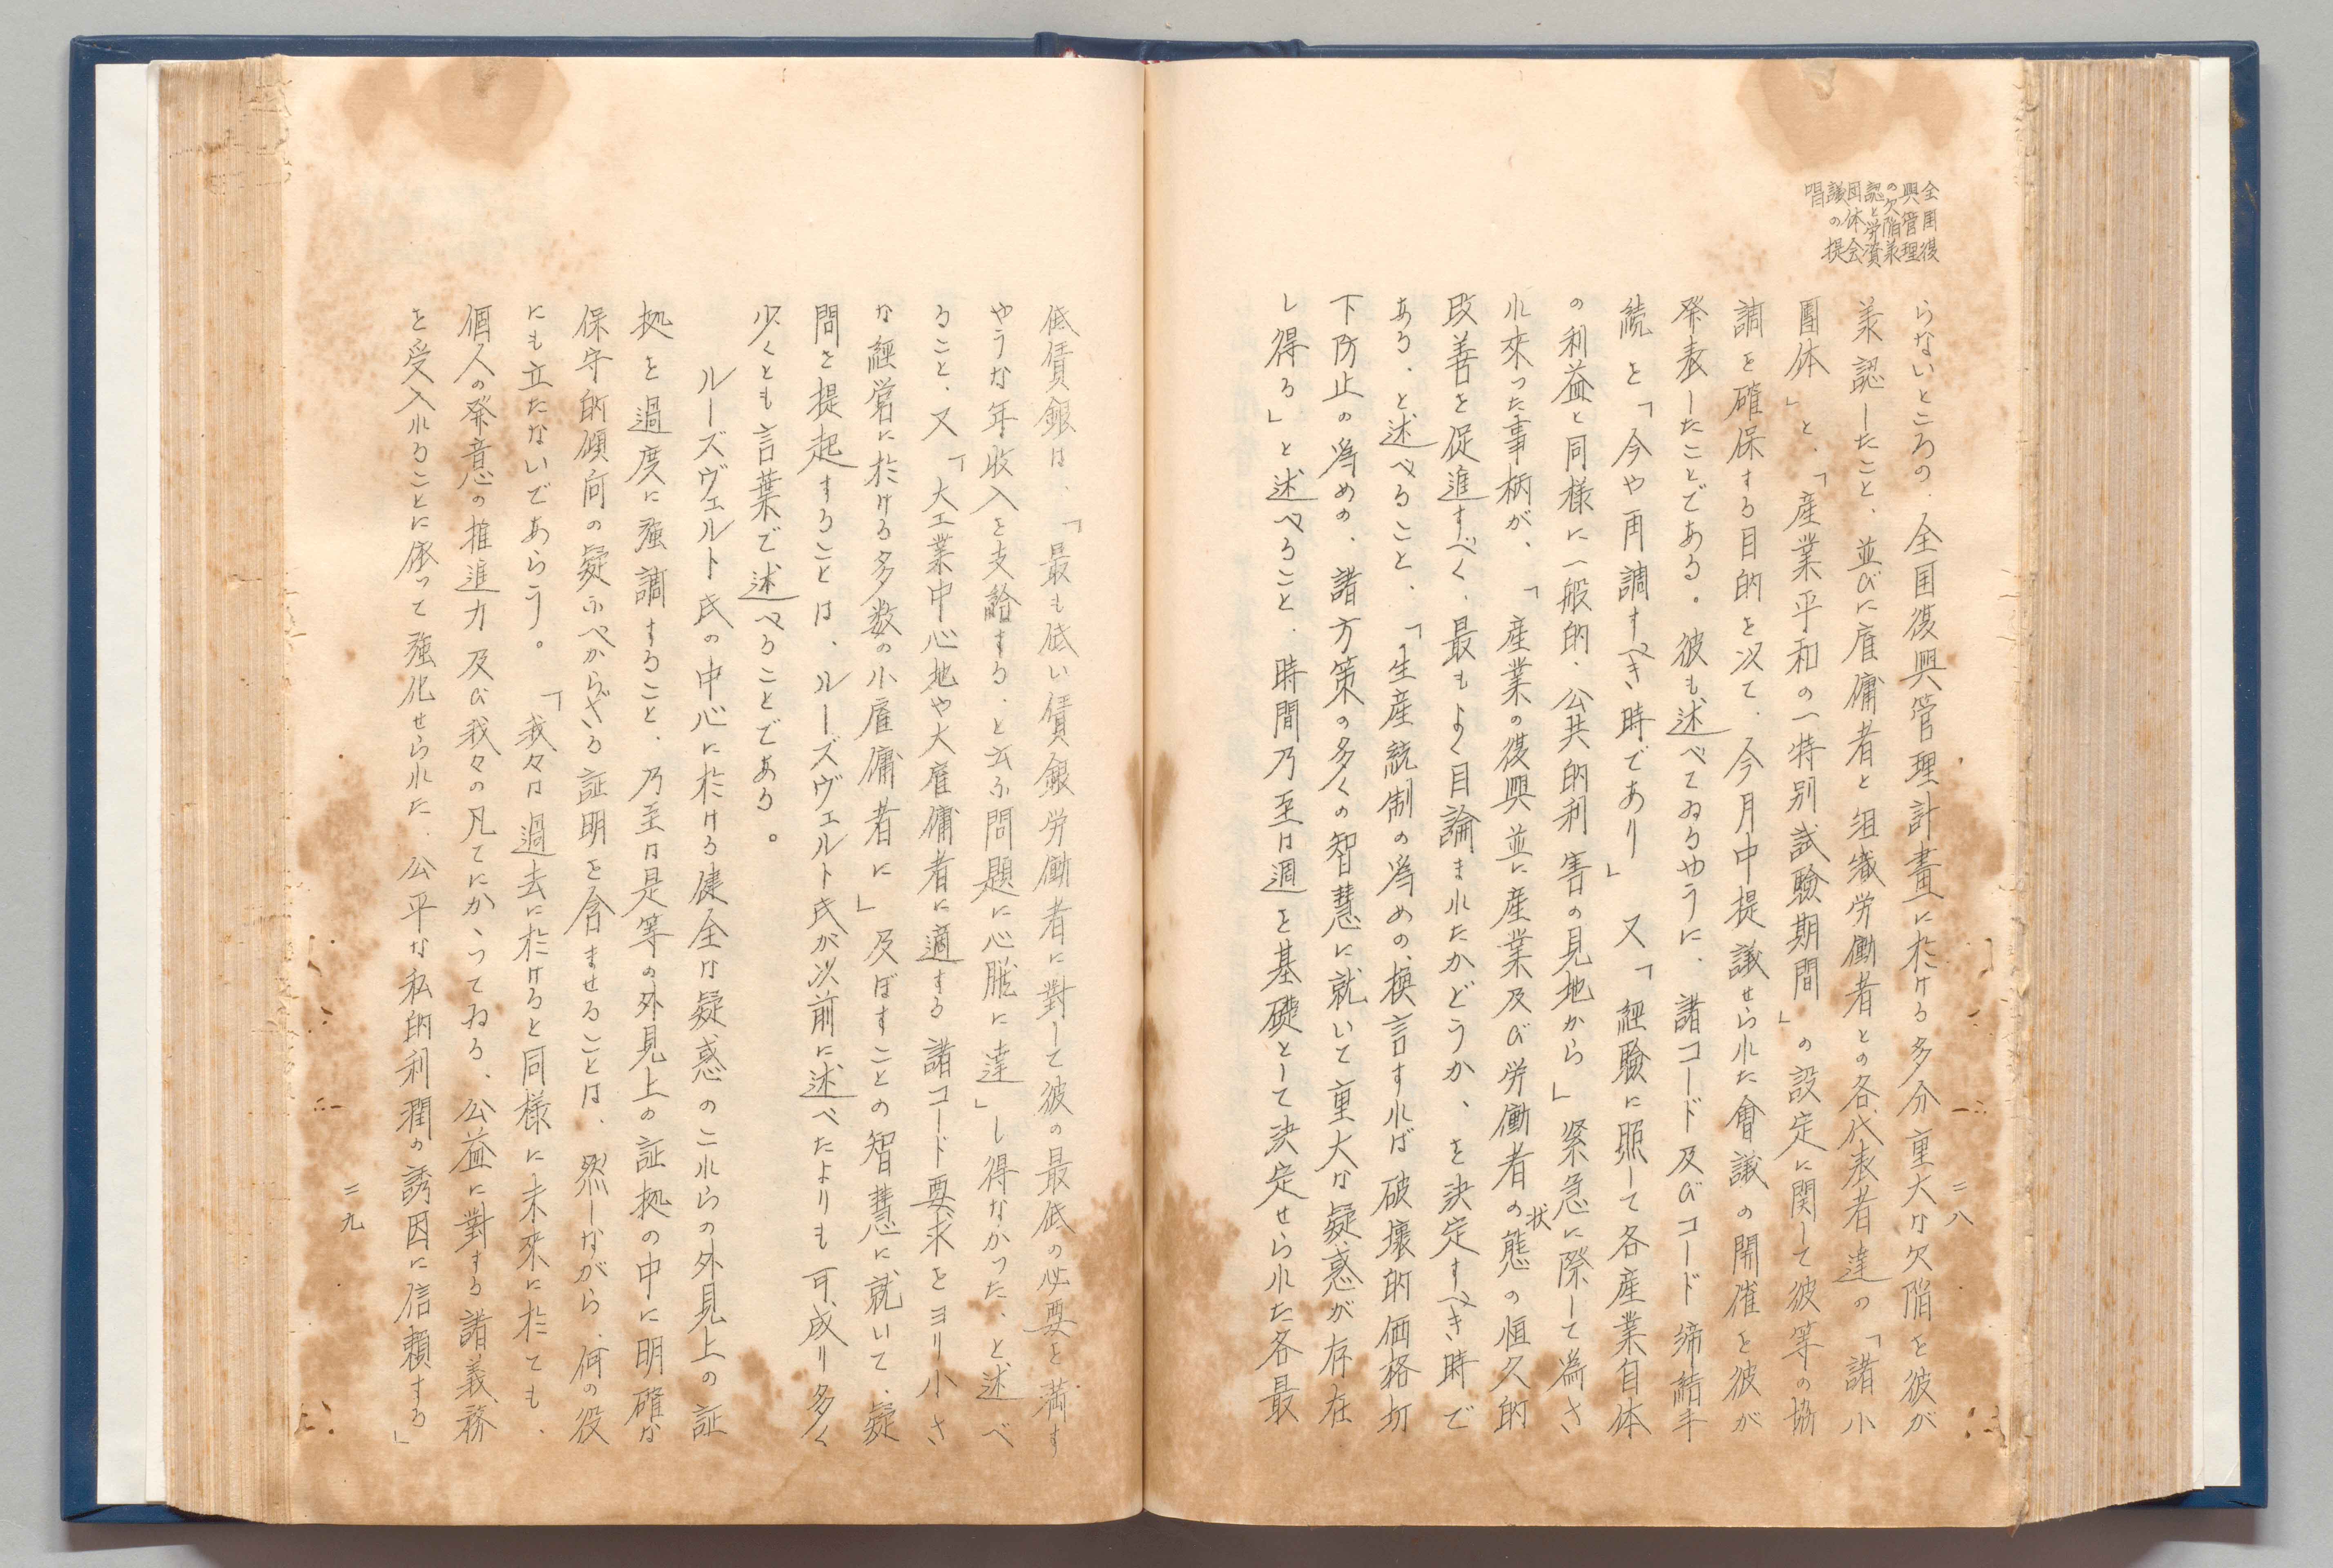 全国復
興管理
の欠陥承
認と労資
団体会
議の提
唱
らないところの、全国復興管理計畫に於ける多分重大な欠陥を彼が
承認したこと、並びに雇傭者と組織労働者との各代表者達の「諸小
團体」と、「産業平和の一特別試験期間」の設定に関して彼等の協
調を確保する目的を以て、今月中提議せられた會議の開催を彼が
発表したことである。彼も述べてゐるやうに、諸コード及びコード締結手
続を「今や再調すべき時であり」又「経験に照して各産業自体
の利益と同様に一般的、公共的利害の見地から」緊急に際して為さ
れ来った事柄が、「産業の復興並に産業及び労働者の状態の恒久的
改善を促進すべく、最もよく目論まれたかどうか、を決定すべき時で
ある、と述べること、「生産統制の為めの、換言すれば破壊的価格切
下防止の為めの、諸方策の多くの智慧に就いて重大な疑惑が存在
し得る」と述べること、時間乃至は週を基礎として決定せられた各最
二八
低賃銀は、「最も低い賃銀労働者に對して彼の最低の必要を満す
やうな年收入を支給する、と云ふ問題に心臓に達」し得なかった、と述べ
ること、又「大工業中心地や大雇傭者に適する諸コード要求をヨリ小さ
な経営に於ける多数の小雇傭者に」及ぼすことの智慧に就いて、疑
問を提起することは、ルーズヴェルト氏が以前に述べたよりも可成り多く
少くとも言葉で述べることである。
ルーズヴェルト氏の中心に於ける健全な疑惑のこれらの外見上の証
拠を過度に強調すること、乃至は是等の外見上の証拠の中に明確な
保守的傾向の疑ふべからざる証明を含ませることは、然しながら、何の役
にも立たないであらう。「我々は過去に於けると同様に未来に於ても、
個人の発意の推進力及び我々の凡てにかゝってゐる、公益に對する諸義務
を受入れることに依って強化せられた、公平な私的利潤の誘因に信頼する」
二九